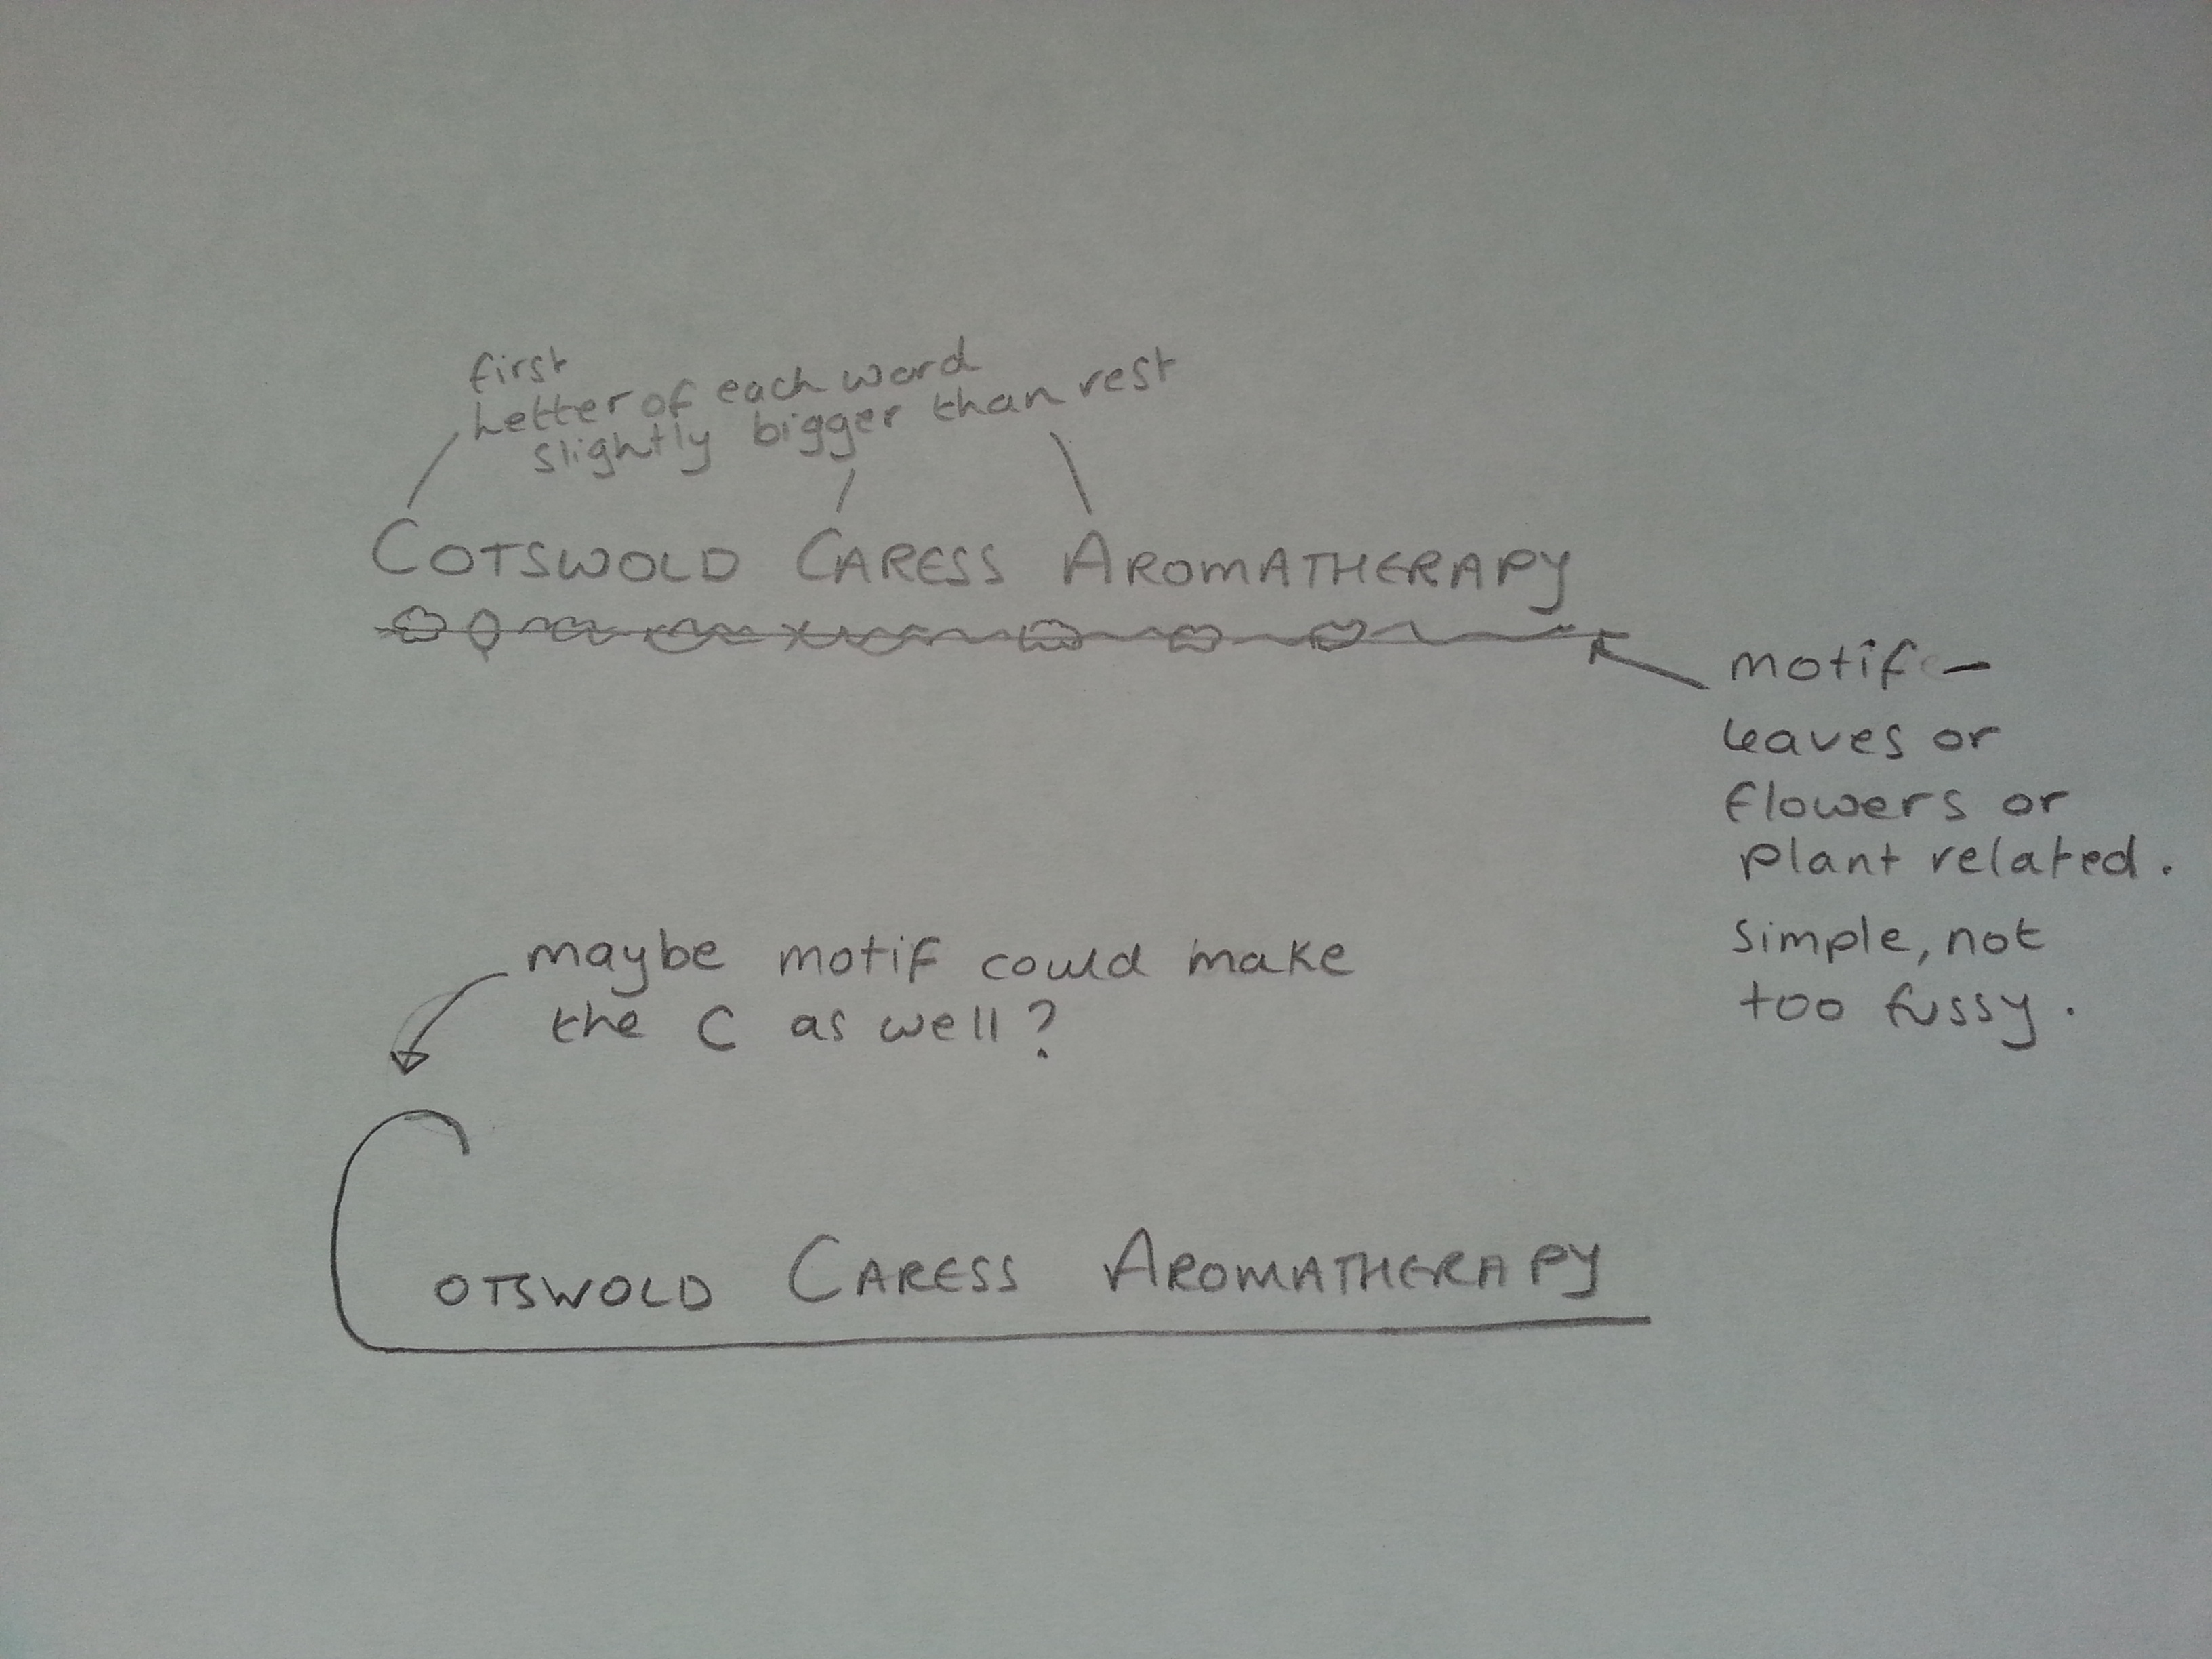 first
Letter of each word
slightly bigger than rest
COTSWOLD CARESS AROMATHERAPY
motif –
leaves or
flowers or
plant related.
simple, not
too fussy.
maybe motif could make
the C as well?
COTSWOLD CARESS AROMATHERAPY